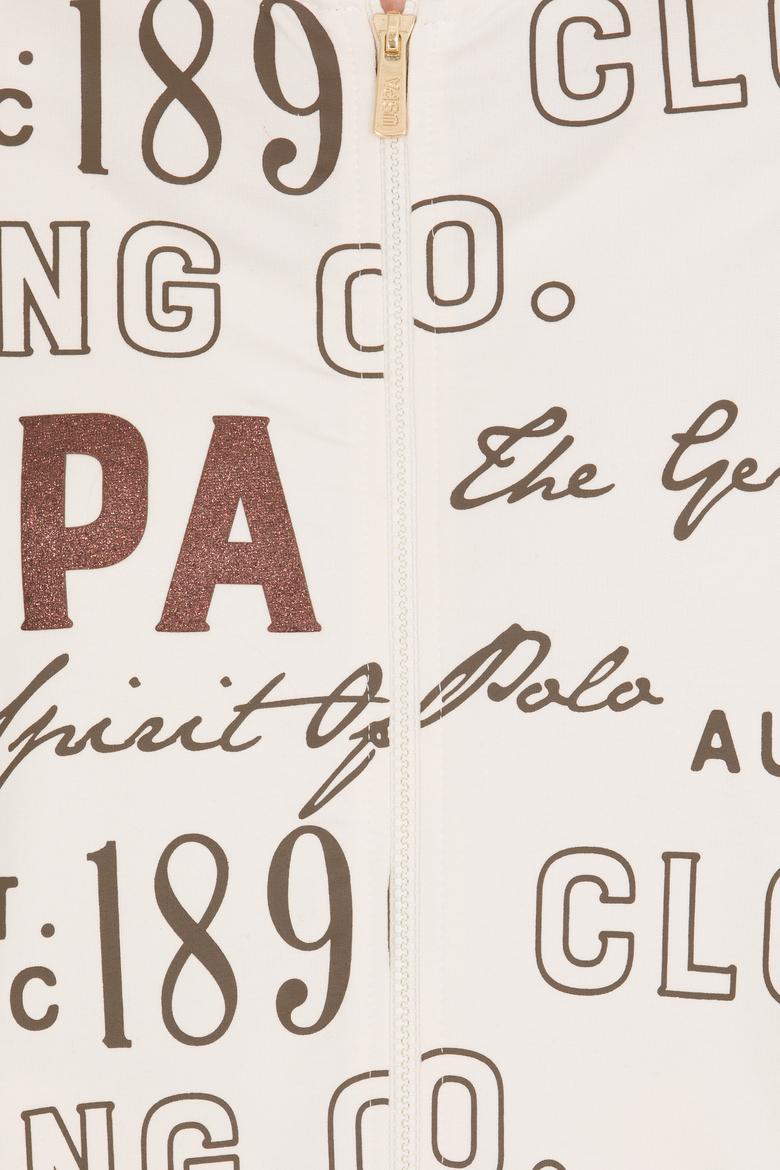 c. 189 CLO
USPA
NG CO.
PA The Ge
Spirit Of Polo
AU
T. 189
c CLO
NG CO.